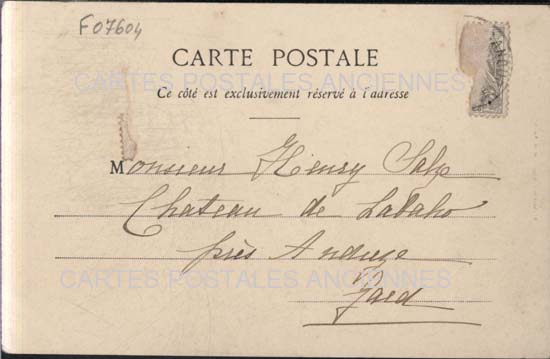 F07604
CARTE POSTALE
CARTES POSTALES ANCIENNES
Ce côté est exclusivement réservé à l'adresse
Monsieur Henry Salze
Chateau de Labaho
près Anduze
CARTES POSTALES ANCIENNES
Gard